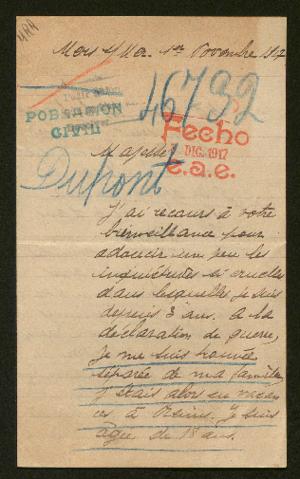 Mers s/Mer 1er Novembre 1917
46732
POBLACION
CIVIL
Fecho
DIC. 1917
e.a.e.
Majesté,
Dupont
J'ai recours à votre
bienveillance pour
adoucir un peu les
inquiétudes si cruelles
dans lesquelles je suis
depuis 3 ans. A la
déclaration de guerre,
je me suis trouvée
séparée de ma famille,
j'étais alors en vacan
ces à Reims. Je suis
âgée de 18 ans.